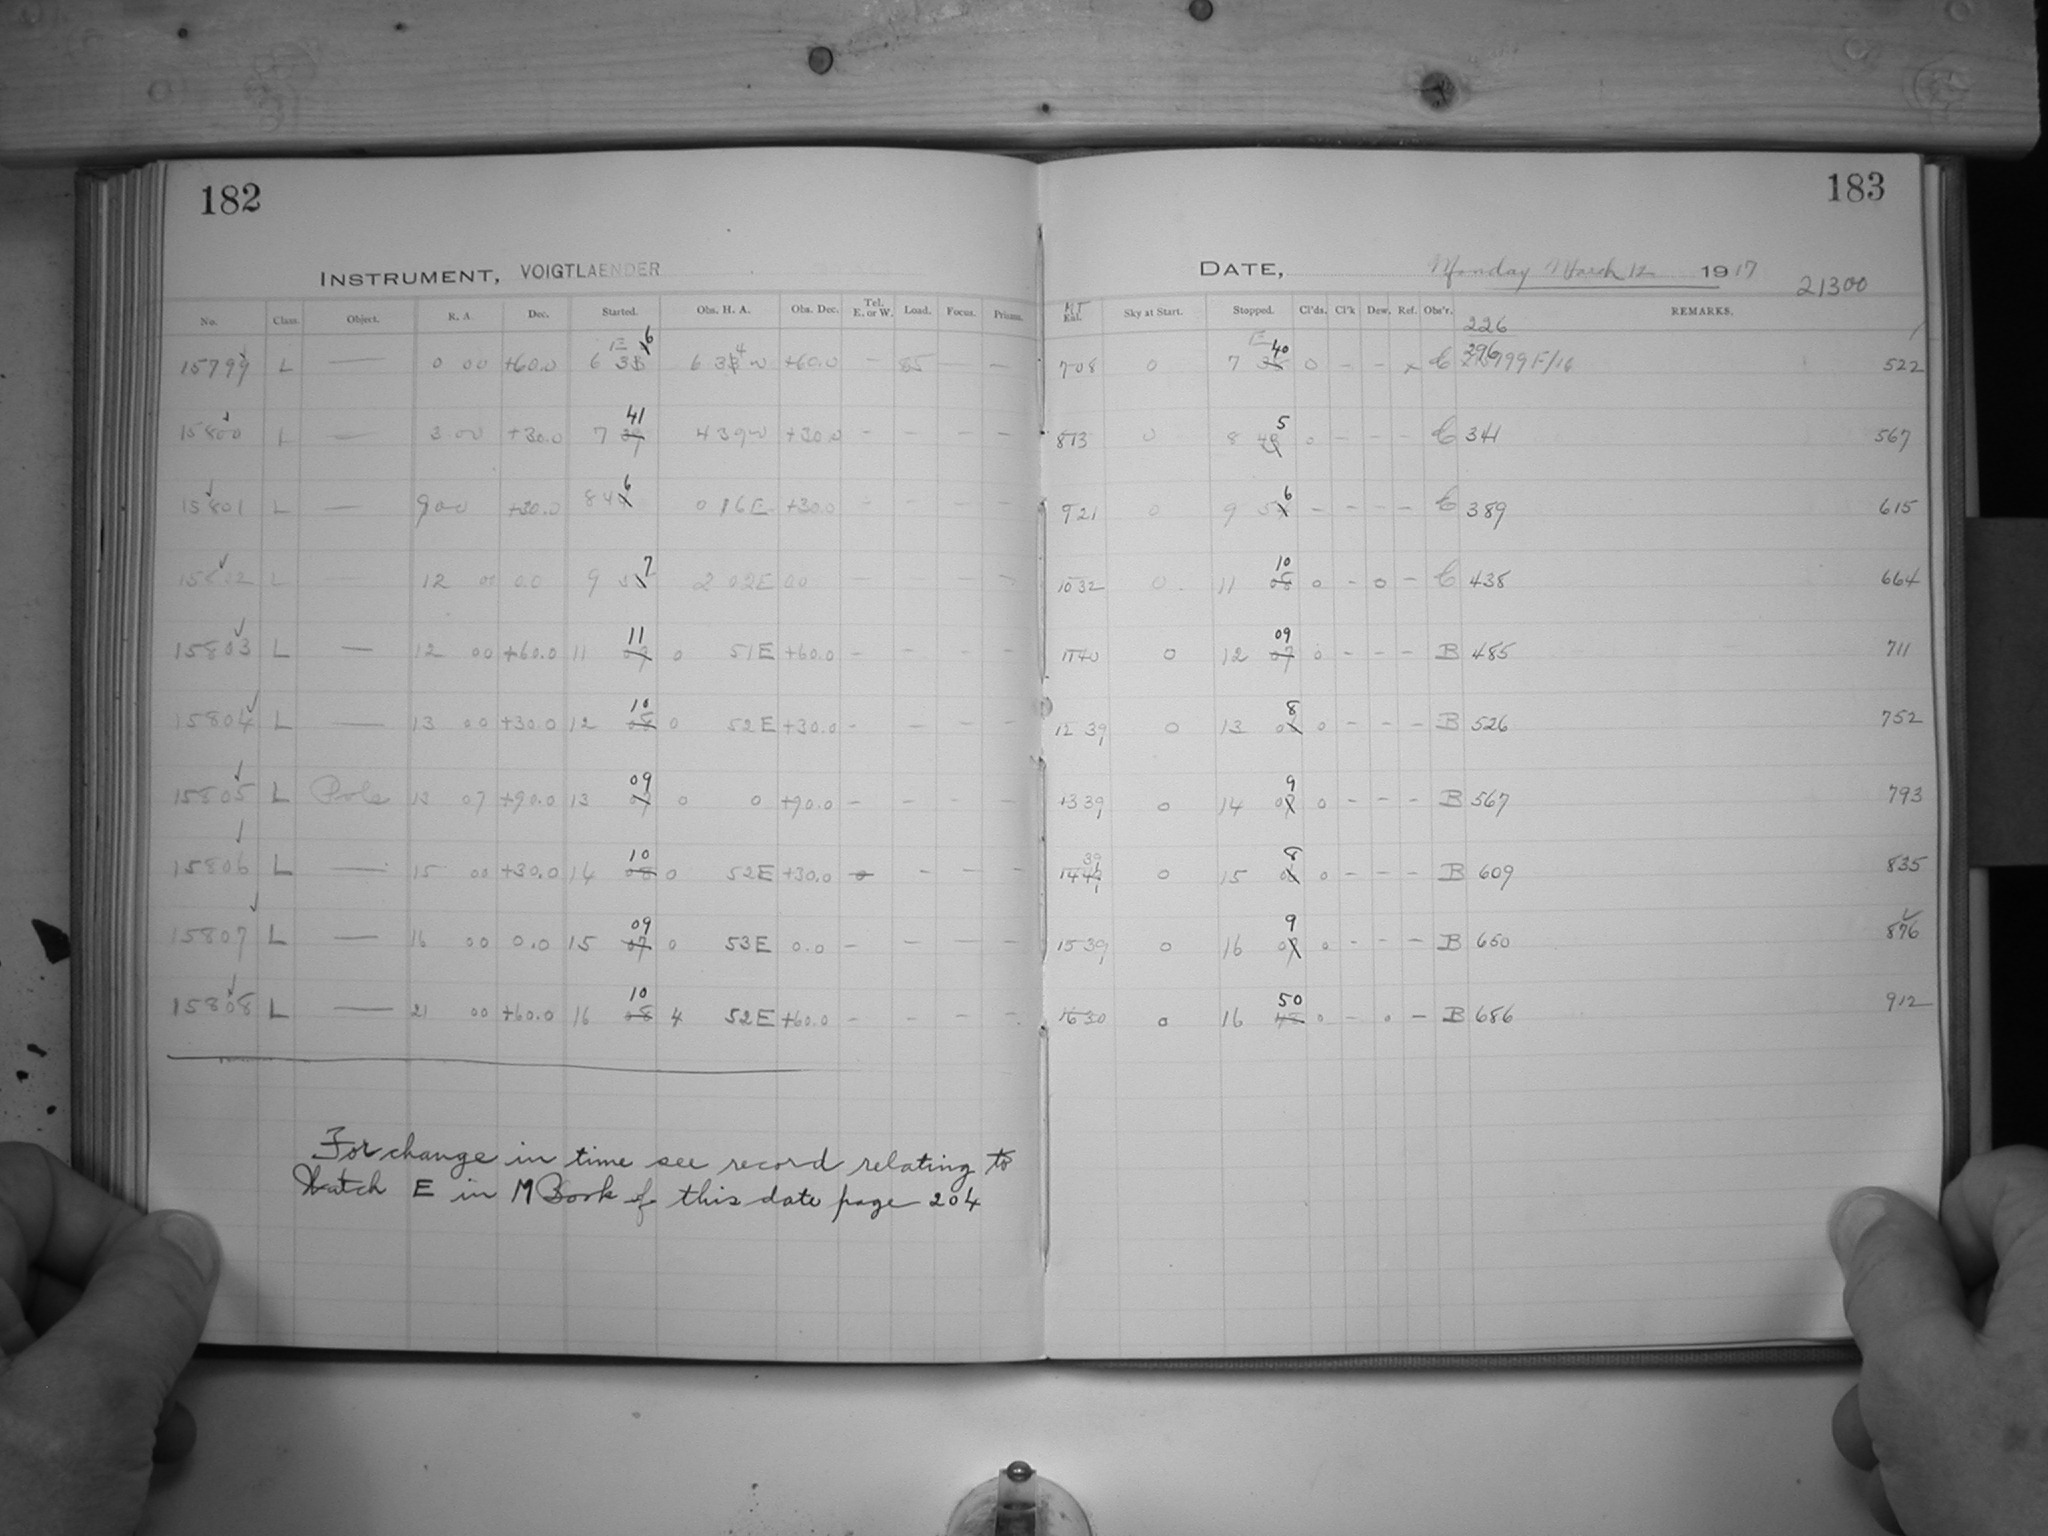 182
INSTRUMENT, VOIGTLAENDER
No. Class. Object. R. A. Dec. Started. Obs. H. A. Obs. Dec. Tel. E. or W. Load. Focus. Prisms.
E 6
15799 L — 0 00 +60.0 6 35 6 33 4 W +60.0 — 85 — —
41
15800 L — 3 00 +30.0 7 39 4 39 W +30.0 — — — —
6
15801 L — 9 00 +30.0 8 4 0 16 E +30.0 — —
7
15802 L — 12 00 00 9 5 2 02 E 00 — — — —
11
15803 L — 12 00 +60.0 11 09 0 51 E +60.0 — — — —
10
15804 L — 13 00 +30.0 12 08 0 52 E +30.0 — — — —
09
15805 L Pole 13 07 +90.0 13 07 0 0 +90.0 — — — —
10
15806 L — 15 00 +30.0 14 08 0 52 E +30.0 — — — —
09
15807 L — 16 00 0.0 15 07 0 53 E 0.0 — — — —
10
15808 L — 21 00 +60.0 16 08 4 52 E +60.0 — — — —
For change in time see record relating to
Watch E in M Book of this date page 204
183
DATE, Monday March 12 1917
21300
Exl. Sky at Start. Stopped. Cl'ds. Cl'k Dew. Ref. Obs'r. REMARKS.
226
E 40 296
7 08 0 7 38 0 — — x C 999 F/16 522
5
8 13 0 8 43 0 — — — C 341 567
6
9 21 0 9 5 — — — — C 389 615
10
10 32 0 11 08 0 — 0 — C 438 664
09
11 40 0 12 07 0 — — — B 485 711
8
12 39 0 13 0 0 — — — B 526 752
9
13 39 0 14 0 0 — — — B 567 793
39 8
14 49 0 15 0 0 — — — B 609 835
9
15 39 0 16 07 0 — — — B 650 876
50
16 30 0 16 48 0 — 0 — B 686 912